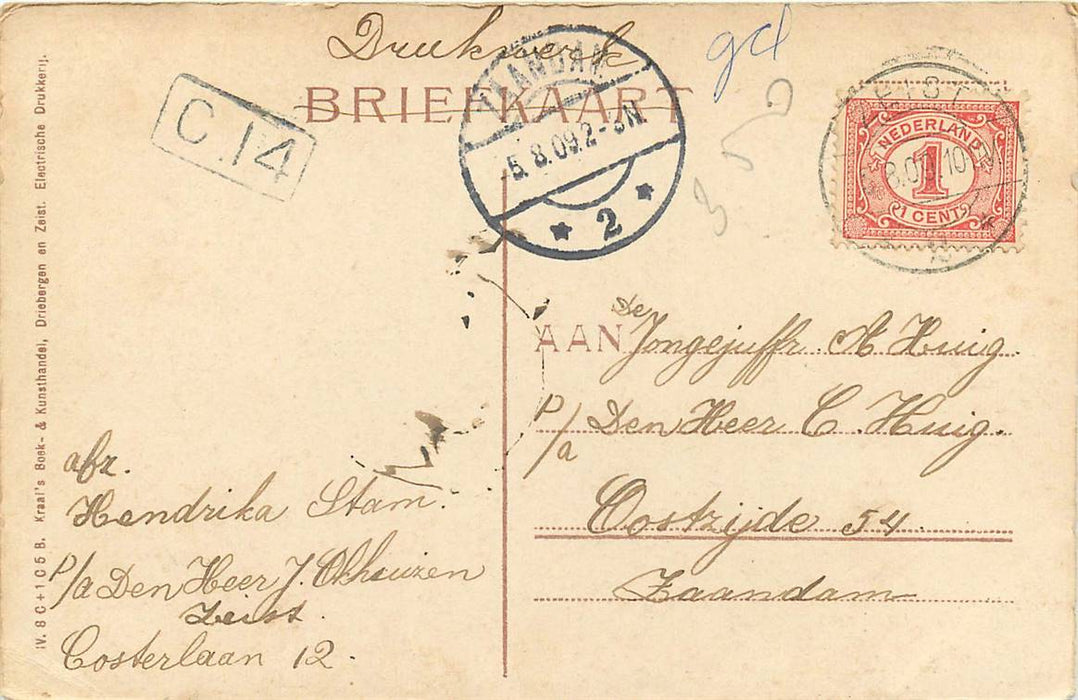 Drukwerk
BRIEFKAART
gd
C.14
ZAANDAM
5.8.09.2-3N
2
ZEIST
8.09.10
NEDERLAND
1
1 CENT
AAN
De
Jongejuffr. A Huig.
p/a Den Heer C. Huig.
Oostzijde 54.
Zaandam
afz.
Hendrika Stam.
p/a Den Heer J. Okhuizen
Zeist.
Costerlaan 12.
IV. 8 C + 1 C 5 B. Kraal's Boek- & Kunsthandel, Driebergen en Zeist. Electrische Drukkerij.